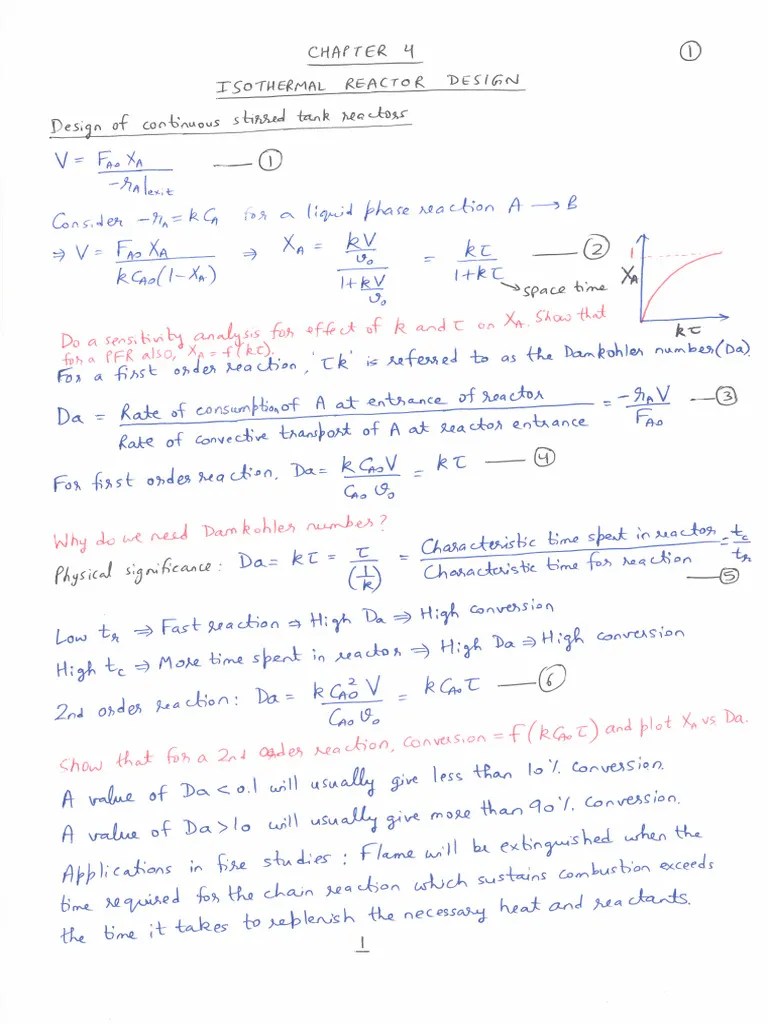 CHAPTER 4 ①
ISOTHERMAL REACTOR DESIGN
Design of continuous stirred tank reactors
V = F_A0 X_A / -r_A|exit —— ①
Consider -r_A = k C_A for a liquid phase reaction A → B
⇒ V = F_A0 X_A / k C_A0 (1 - X_A) ⇒ X_A = (kV/υ_0) / (1 + kV/υ_0) = kτ / 1 + kτ —— ②
→ space time
1
X_A
kτ
Do a sensitivity analysis for effect of k and τ on X_A. Show that
for a PFR also, X_A = f(kτ).
For a first order reaction, 'τk' is referred to as the Damkohler number (Da).
Da = Rate of consumption of A at entrance of reactor / Rate of convective transport of A at reactor entrance = -r_A V / F_A0 —— ③
For first order reaction, Da = k C_A0 V / C_A0 υ_0 = kτ —— ④
Why do we need Damkohler number?
Physical significance: Da = kτ = τ / (1/k) = Characteristic time spent in reactor / Characteristic time for reaction = t_c / t_r —— ⑤
Low t_r ⇒ Fast reaction ⇒ High Da ⇒ High conversion
High t_c ⇒ More time spent in reactor ⇒ High Da ⇒ High conversion
2nd order reaction: Da = k C_A0² V / C_A0 υ_0 = k C_A0 τ —— ⑥
Show that for a 2nd order reaction, conversion = f(k C_A0 τ) and plot X_A vs Da.
A value of Da < 0.1 will usually give less than 10% conversion.
A value of Da > 10 will usually give more than 90% conversion.
Applications in fire studies : Flame will be extinguished when the
time required for the chain reaction which sustains combustion exceeds
the time it takes to replenish the necessary heat and reactants.
1